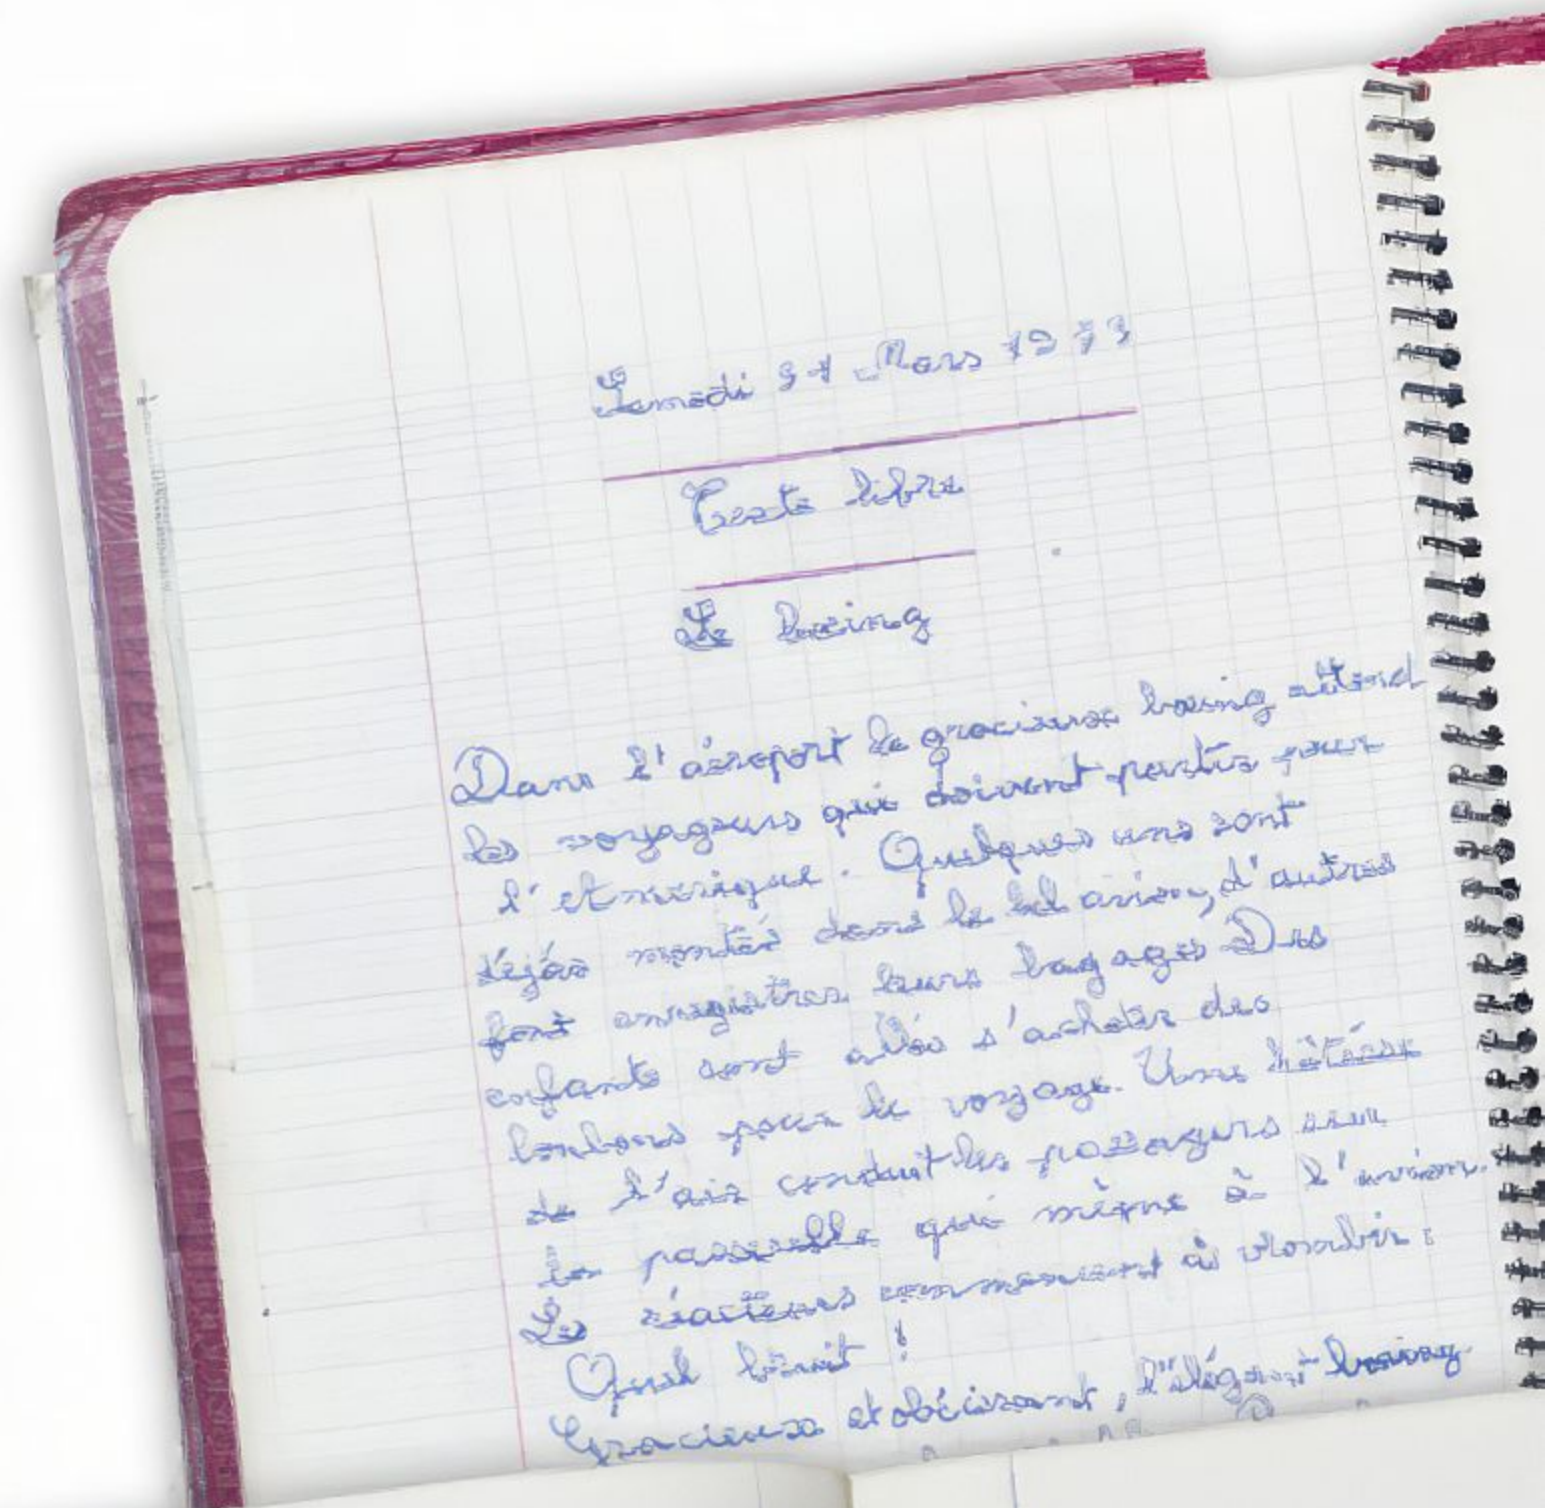 Samedi 31 Mars 1973
Texte libre
Le boeing
Dans l'aéroport le gracieux boeing attend
les voyageurs qui doivent partir pour
l'Amérique. Quelques uns sont
déjàs montés dans le bel avion, d'autres
font enregistrer leurs bagages Des
enfants sont allés s'acheter des
bonbons pour le voyage. Une hôtesse
de l'air conduit les passagers sur
la passerelle qui mène à l'avion.
Les réacteurs commencent à vrombir :
Quel bruit !
Gracieux et obéissant, l'élégant boeing